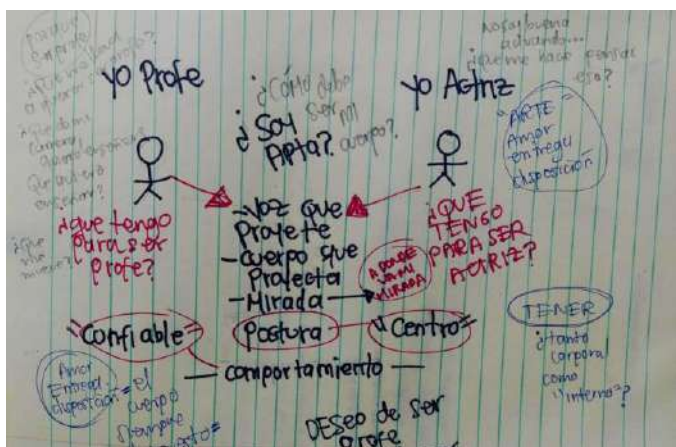 Yo Profe
¿Cómo debo
ser mi
cuerpo?
¿Soy
Apta?
Yo Actriz
No soy buena
actuando...
¿que me hace pensar
eso?
"ARTE"
Amor
entrega
disposición
¿que tengo
para ser
profe?
-Voz que
Proyecte
-cuerpo que
Proyecta
-Mirada
A DONDE
VA MI
MIRADA
¿QUE
TENGO
PARA SER
ACTRIZ?
¿que
me
mueve?
"Confiable"
Postura
"Centro"
comportamiento
TENER
¿tanto
corporal
como
"interno"?
Amor
Entrega
disposición = el
cuerpo
siempre
DESEO de ser
profe